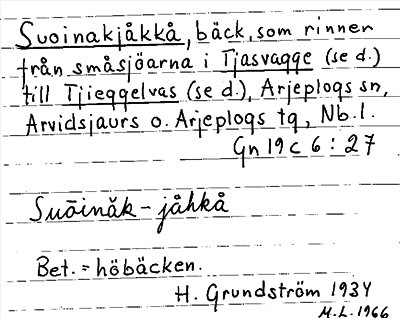 Suoinakjåkkå, bäck, som rinner
från småsjöarna i Tjasvagge (se d.)
till Tjieggelvas (se d.), Arjeplogs sn,
Arvidsjaurs o. Arjeplogs tg, Nb. l.
Gn 19 c 6 : 27
Suäinăk - jåhkå
Bet. = höbäcken.
H. Grundström 1934
M.L. 1966